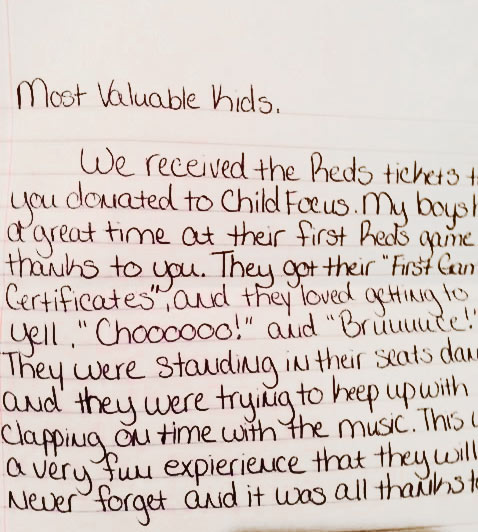 Most Valuable Kids.
We received the Reds tickets
you donated to Child Focus. My boys
a great time at their first Reds game
thanks to you. They got their "First Gam
Certificates", and they loved getting to
yell, "Choooooo!" and "Bruuuuce!"
They were standing in their seats dan
and they were trying to keep up with
clapping on time with the music. This
a very fun expierience that they will
never forget and it was all thanks to